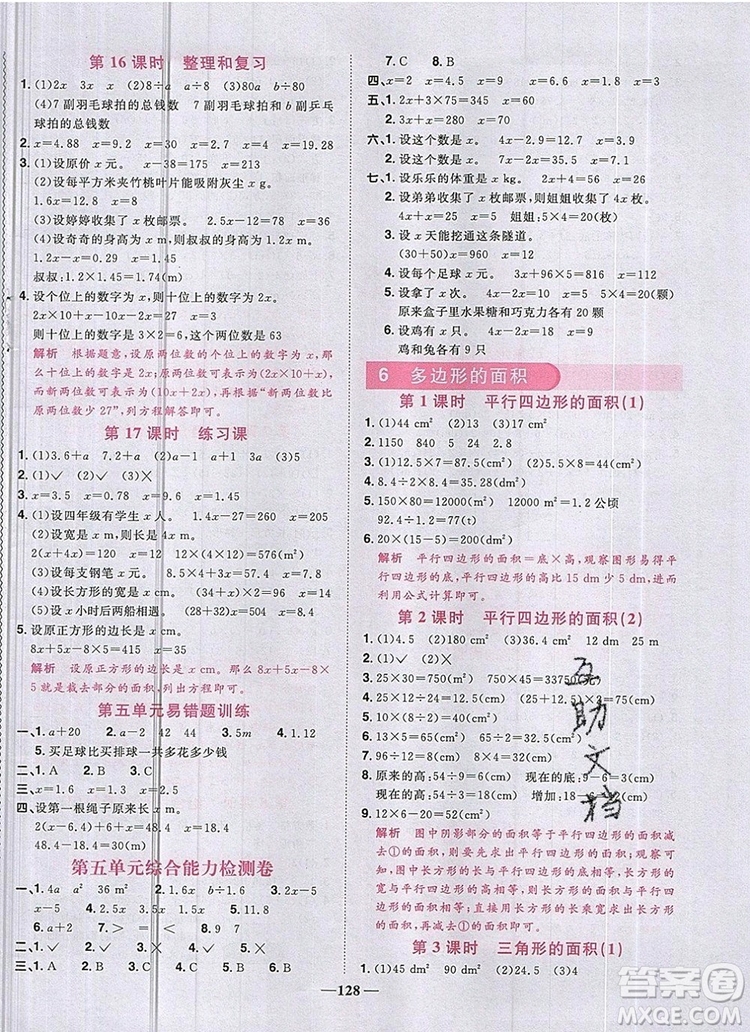 第16课时　整理和复习
1. (1)2x　3x　x　(2)8÷a　a÷8　(3)80a　b÷80
(4)7副羽毛球拍的总钱数　7副羽毛球拍和b副乒乓
球拍的总钱数
2. x=4.88　x=9.2　x=27.9　x=13
3. (1)设原价x元。　x-38=175　x=213
(2)设每平方米夹竹桃叶片能吸附灰尘x g。
1.6x=12.8　x=8
(3)设婷婷收集了x枚邮票。　2x-10=60　x=35
(4)设奇奇的身高为x m,则叔叔的身高为1.2x m。
1.2x-x=0.3　x=1.5
叔叔:1.2×1.5=1.8(m)
4. 设个位上的数字为x,则十位上的数字为2x。
2x×10+x-10x-2x=27　x=3
则十位上的数字是3×2=6,这个两位数是63
解析　根据题意,设原两位数的个位上的数字为x,那
么十位上的数字为2x,这个原两位数为(2x×10+x),
而新两位数的大小为(10x+2x),再根据“新两位数比原
两位数少27”,列方程解答即可。
第17课时　练习课
1. (1)3.6+a　7.2+a　(2)4a　a　3a　(3)1.5　4.5
2. (1)✓　(2)✓　(3)✕
3. x=1.5　x=0.8　x=10　x=4.8
4. (1)设四年级有学生x人。　1.5x-24=456　x=320
(2)设宽是x m,则长是4x m。
2(x+4x)=240　x=24　24×(24×4)=2304(m²)
(3)设每支钢笔x元。　8.5×4+5x=74　x=8
(4)设长方形的宽是x cm。　(34+x)×2=96　x=14
(5)设x小时后两船相遇。　(28+32)x=540　x=9
5. 设原正方形的边长是x cm。
8x+5x-8×5=64　x=8
解析　设原正方形的边长是x cm。那么8x+5x-8×5
就是截去两部分的面积,列出方程即可。
第五单元易错题训练
一、1. a+20　2. m　3. 20+4b　4. 5m　2m
5. 买足球比买排球一共多花多少钱
二、1. A　2. B　3. A　4. A
三、1. ✕　2. ✕　3. ✕　4. ✕
四、设第一根绳子原来长x m。
48.4-x=2(48.4-30-x)
第五单元综合能力检测卷
一、1. 4a　a²　36 m²　2. 1.6x　x-b　3. 81　5.2
x-5　4. 10　x　5. 5.4　1.2
6. a+2　7. >　<　=　>　8. 4
二、1. ✓　2. ✓　3. ✕　4. ✕　5. ✕
三、1. A　2. A　3. B　4. C　5. B　6. C
7. C　8. B
四、x=2　x=4.5　x=9　x=4.6
五、1. 2x+3×75=410　x=92.5
2. 3x+x=280　x=70
六、1. 设这个数是x。　4x-1.8x=44　x=20
2. 设这个数是x。
七、1. 设乐乐的体重是x kg。
2. 设弟弟收集了x枚邮票,则姐姐收集了4x枚。
4x+x=25　x=5　姐姐:5×4=20(枚)
3. 设x天能挖通这条隧道。
(30+50)x=960　x=12
4. 设每个足球x元。　3x+96=8x-32　x=25.6
5. 设拿了x次。
6. 设鸡有x只。
鸡和兔各有9只
6　多边形的面积
第1课时　平行四边形的面积(1)
1. (1)44 cm²　(2)54 cm²　(3)24 cm²
2. 1150　840　5　24　2.8
3. (1)12.5×7=87.5(cm²)　(2)8×5.5=44(cm²)
4. 8.4÷2.4×2.8=9.8(m)
5. 150×80=12000(m²)　12000m²=1.2公顷
1.2×64.2=77.04(t)　77.04>77
6. 20×(15-5)=200(dm²)
解析　平行四边形的面积=底×高,观察图形易得平
行四边形的底,平行四边形的高比15 dm少5 dm,进而
利用公式计算即可。
第2课时　平行四边形的面积(2)
1. (1)4.5　(2)180 cm²　(3)36.4 cm　12 dm　25 m
2. (1)✓　(2)✓　(3)✕
3. 25×30=750(cm²)
4. 25×30=750(cm²)　(25+12.5)×2=75(cm)
7. 96÷12=8(cm)　8×4=32(cm)
8. 原来的高:54÷9=6(cm)　现在的底:9-6=3(cm)
现在的高:54÷3=18(cm)　增加:18-6=12(cm)
9. 12×6-20=52(cm²)
解析　图中阴影部分的面积等于平行四边形的面积减
去①的面积,则要先求出平行四边形的面积;观察可
知,图中长方形的长与平行四边形的底相等,长方形的
宽与平行四边形的高相等,则长方形的面积与平行四
边形的面积相等;直接用长方形的面积减去①的面积
即可。
第3课时　三角形的面积(1)
1. (1)45 dm²　90 dm²　(2)24.5　(3)4
128
互助文档
答案圈
MXQE.COM